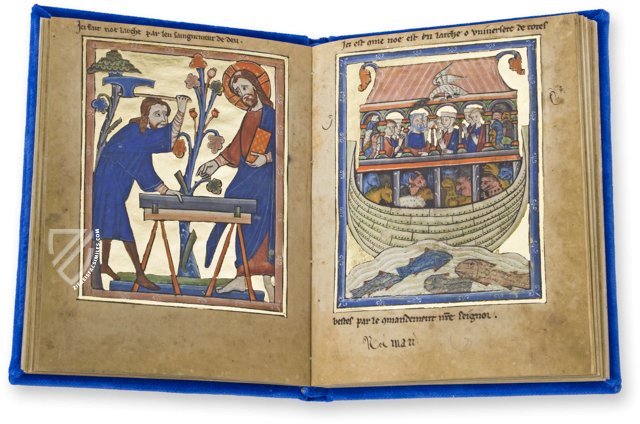 Ici fait noe larche par lenseignement de deu.
Ici est que noe est en larche o vniversete de totes
bestes par le qmandement nrẽ seignor.
ZIEREISFACSIMILES.COM